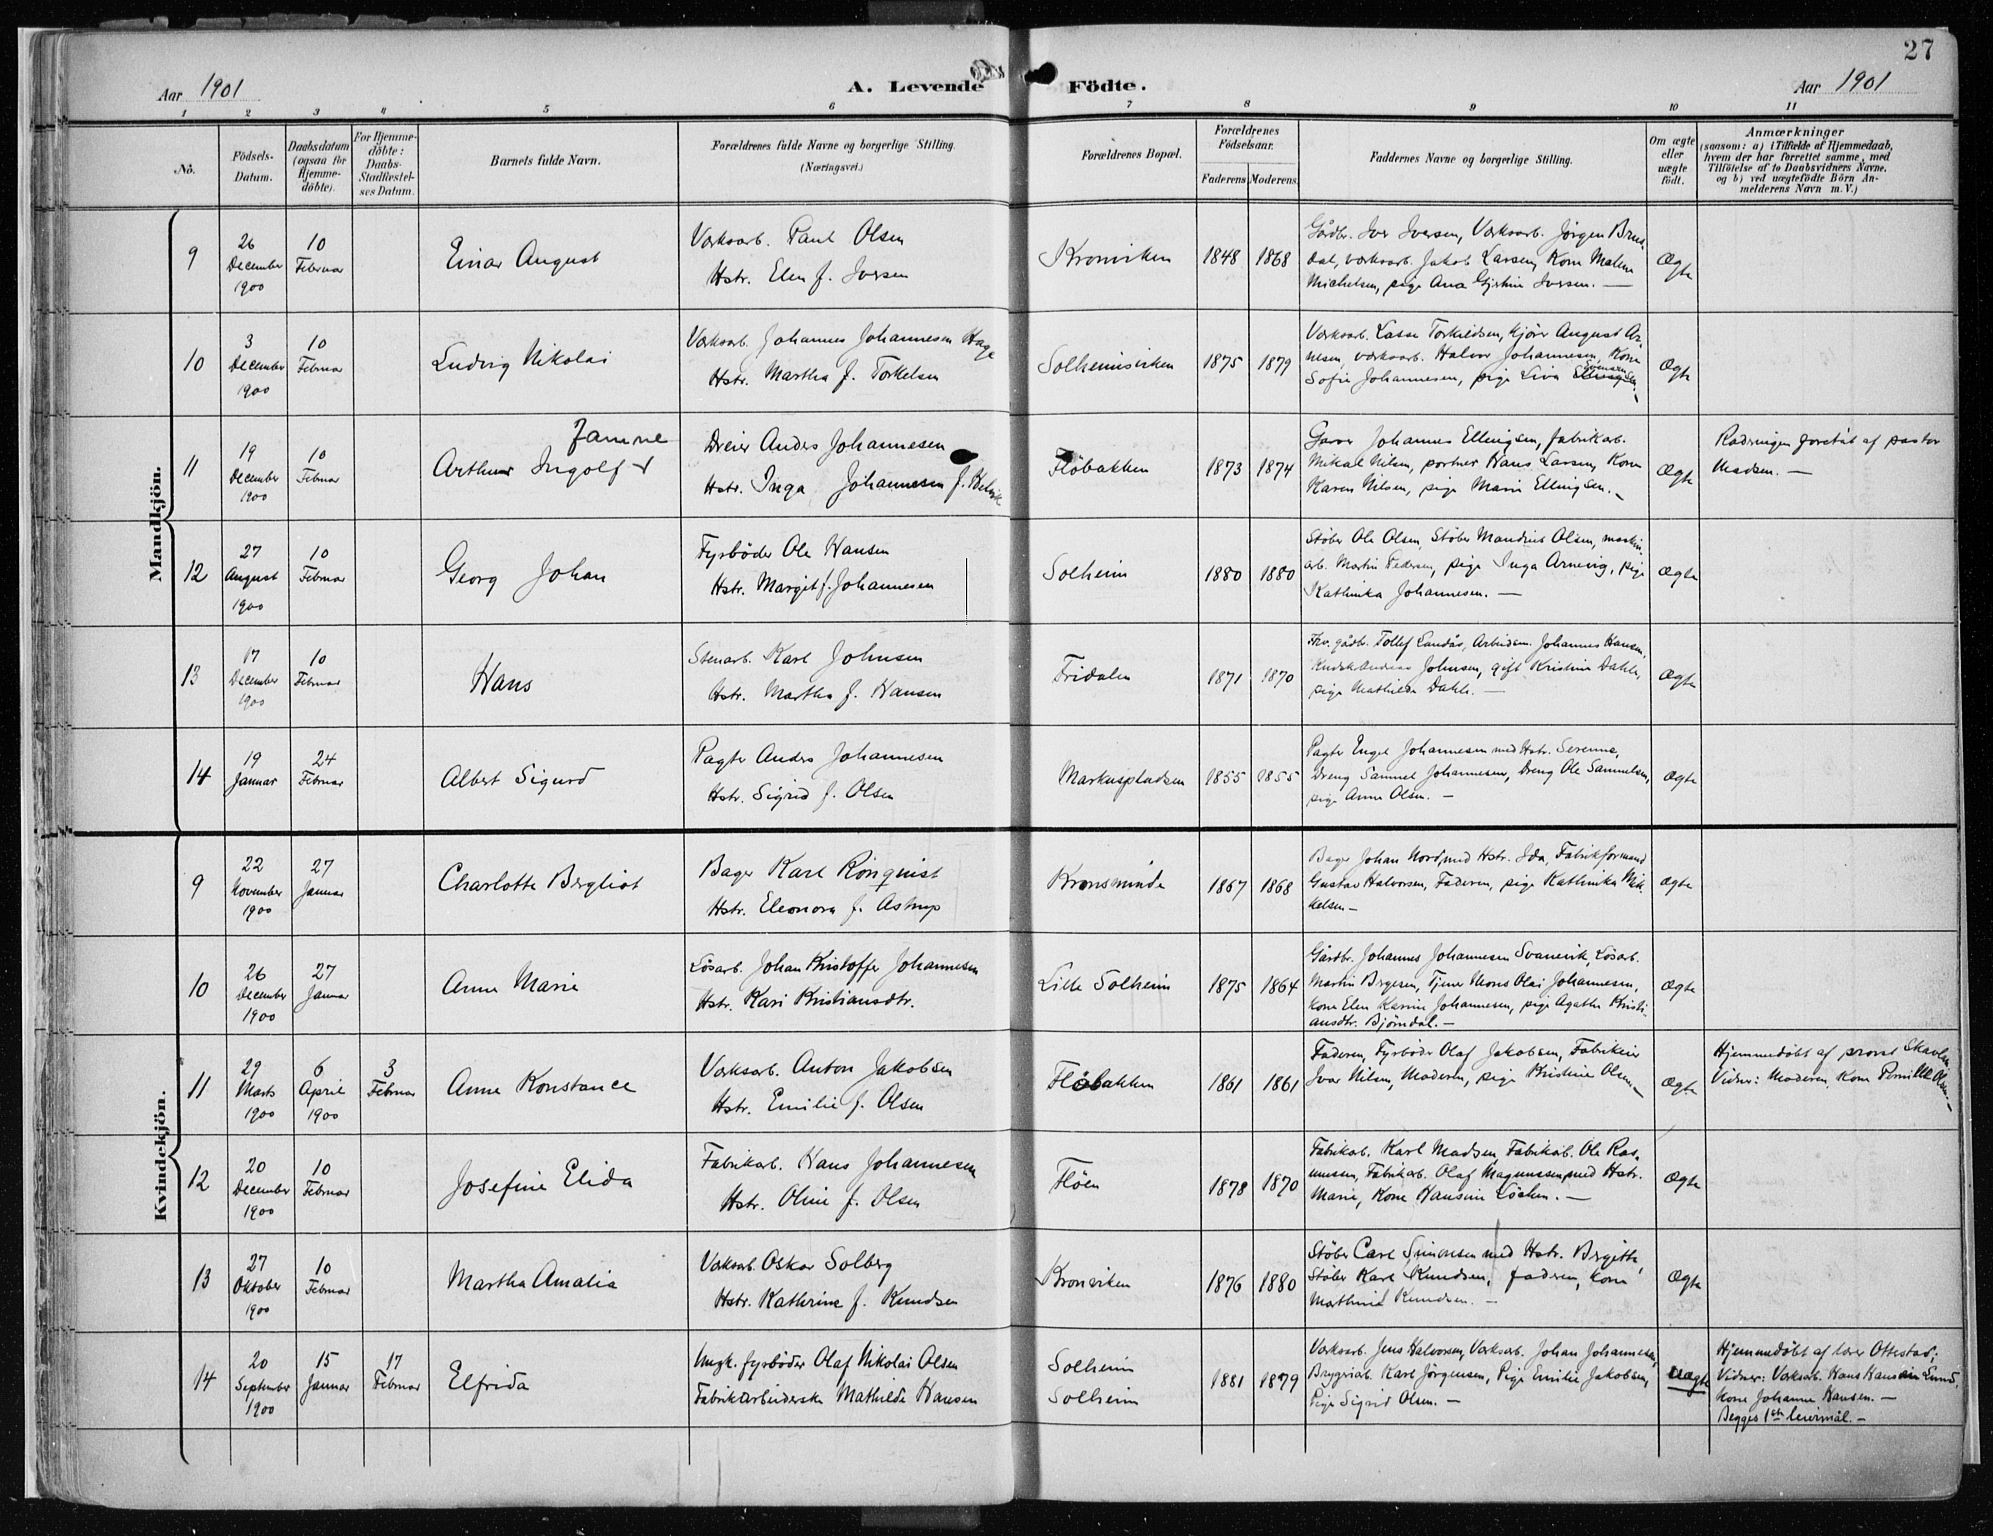 27
Aar 1901
A. Levende Födte.
Aar 1901
1 2 3 4 5 6 7 8 9 10 11
No.
Födsels-
Datum.
Daabsdatum
(ogsaa for
Hjemme-
döbte).
For Hjemme-
döbte:
Daabs-
Stadfæstel-
ses Datum.
Barnets fulde Navn.
Forældrenes fulde Navne og borgerlige Stilling.
(Næringsvei.)
Forældrenes Bopæl.
Forældrenes
Födselsaar.
Faderens Moderens
Faddernes Navne og borgerlige Stilling.
Om ægte
eller
uægte
födt.
Anmærkninger
(saasom: a) i Tilfælde af Hjemmedaab,
hvem der har forrettet samme, med
Tilföielse af to Daabsvidners Navne,
og b) ved uægtefödte Börn An-
melderens Navn m. V.)
Mandkjön.
9
26
December
1900
10
Februar
Einar August
Værksarb. Paul Olsen
Hstr. Elen f. Iversen
Kronviken
1848
1868
Gårdbr. Iver Iversen, Værksarb. Jørgen Brus-
dal, værksarb. Jakob Larsen, Kone Malene
Michelsen, pige Ana Gjertine Iversen. —
Ægte
10
3
December
1900
10
Februar
Ludvig Nikolai
Værksarb. Johannes Johannesen Hage
Hstr. Martha f. Torkelsen
Solheimsviken
1875
1879
Værksarb. Lasse Torkildsen, Kjører August Ar-
nesen, værksarb. Halvor Johannesen, Kone
Sofie Johannesen, pige Lina Svensen
Ægte
11
19
December
1900
10
Februar
Janne
Arthur Ingolf
Dreier Anders Johannesen
Hstr. Inga Johannesen f.
Fløbakken
1873
1874
Garver Johannes Ellingsen, fabrikarb.
Mikal Nilsen, portner Hans Larsen, Kone
Karen Nilsen, pige Marie Ellingsen. —
Ægte
af pastor
Madsen. —
12
27
August
1900
10
Februar
Georg Johan
Fyrbøder Ole Hansen
Hstr. Margit f. Johannesen
Solheim
1880
1880
Støber Ole Olsen, Støber Mandius Olsen, maskin-
arb. Martin Pedersen, pige Inga Arneviq, pige
Kathinka Johannesen. —
Ægte
13
17
December
1900
10
Februar
Hans
Stenarb. Karl Johnsen
Hstr. Martha f. Hansen
Fridalen
1871
1870
Fhv. gådbr. Tollef Landås, Arbeidsm. Johannes Hansen,
Kudsk Andreas Johnsen, gift Kristine Dahle,
pige Mathilde Dahle. —
Ægte
14
19
Januar
24
Februar
Albert Sigurd
Pagter Anders Johannesen
Hstr. Sigrid f. Olsen
Markuspladsen
1855
1855
Pagter Engel Johannesen med Hstr. Serenne,
Dreng Samuel Johannesen, Dreng Ole Samuelsen,
pige Anne Olsen. —
Ægte
Kvindekjön.
9
22
November
1900
27
Januar
Charlotte Bergliot
Bager Karl Rönquist
Hstr. Eleonora f. Astrup
Kronsminde
1867
1868
Bager Johan Nord, med Hstr. Ida, Fabrikformand
Gustav Halvorsen, Faderen, pige Kathinka Mik-
kelsen —
Ægte
10
26
December
1900
27
Januar
Anna Marie
Løsarb. Johan Kristoffer Johannesen
Hstr. Kari Kristiansdtr.
Lille Solheim
1875
1864
Gårdbr. Johannes Johannesen Svanevik, Løsarb.
Martin Birgersen, Tjener Mons Olai Johannesen,
kone Elen Karine Johannesen, pige Agathe Kristi-
ansdtr. Bjørndal. —
Ægte
11
29
Marts
1900
6
April
1900
3
Februar
Anna Konstance
Værksarb. Anton Jakobsen
Hstr. Emilie f. Olsen
Fløbakken
1861
1861
Faderen, Fyrbøder Olaf Jakobsen, Fabrikeier
Ivar Nilsen, Moderen, pige Kristine Olsen. —
Ægte
Hjemmedøbt af provst Skavlan
Vidner: Moderen, kone Pernille Olsen. —
12
20
December
1900
10
Februar
Josefine Elida
Fabrikarb. Hans Johannesen
Hstr. Oline f. Olsen
Fløen
1878
1870
Fabrikarb. Karl Madsen, Fabrikarb. Ole Ras-
mussen, Fabrikarb. Olaf Magnussen, med Hstr.
Marie, Kone Hansine Løken. —
Ægte
13
27
Oktober
1900
10
Februar
Martha Amalia
Værksarb. Oskar Solberg
Hstr. Kathrine f. Knudsen
Kronviken
1876
1880
Støber Carl Simonsen med Hstr. Birgitte,
Støber Karl Knudsen, faderen, kone
Mathine Knudsen. —
Ægte
14
20
September
1900
15
Januar
17
Februar
Elfrida
Ungk. fyrbøder Olaf Nikolai Olsen
Fabrikarbeiderske Mathilde Hansen
Solheim
Solheim
1881
1879
Værksarb. Jens Halvorsen, Værksarb. Johan Johannesen,
Bryggeriarb. Karl Jörgensen, Pige Emilie Jakobsen,
Pige Sigrid Olsen. —
Uægte
Hjemmedøbt af lærer Ottestad;
Vidner: Værksarb. Hans Hansen Lund,
kone Johanne Hansen. —
Begges 1ste leiermål. —